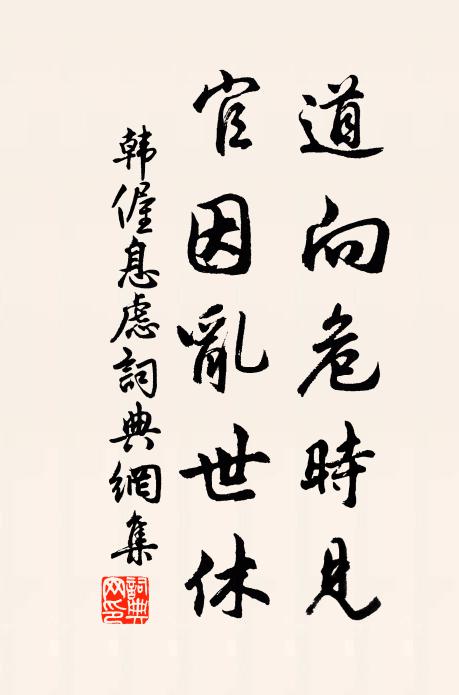 道向危時見
官因亂世休
韩偓息慮詞典網集
詞典網印